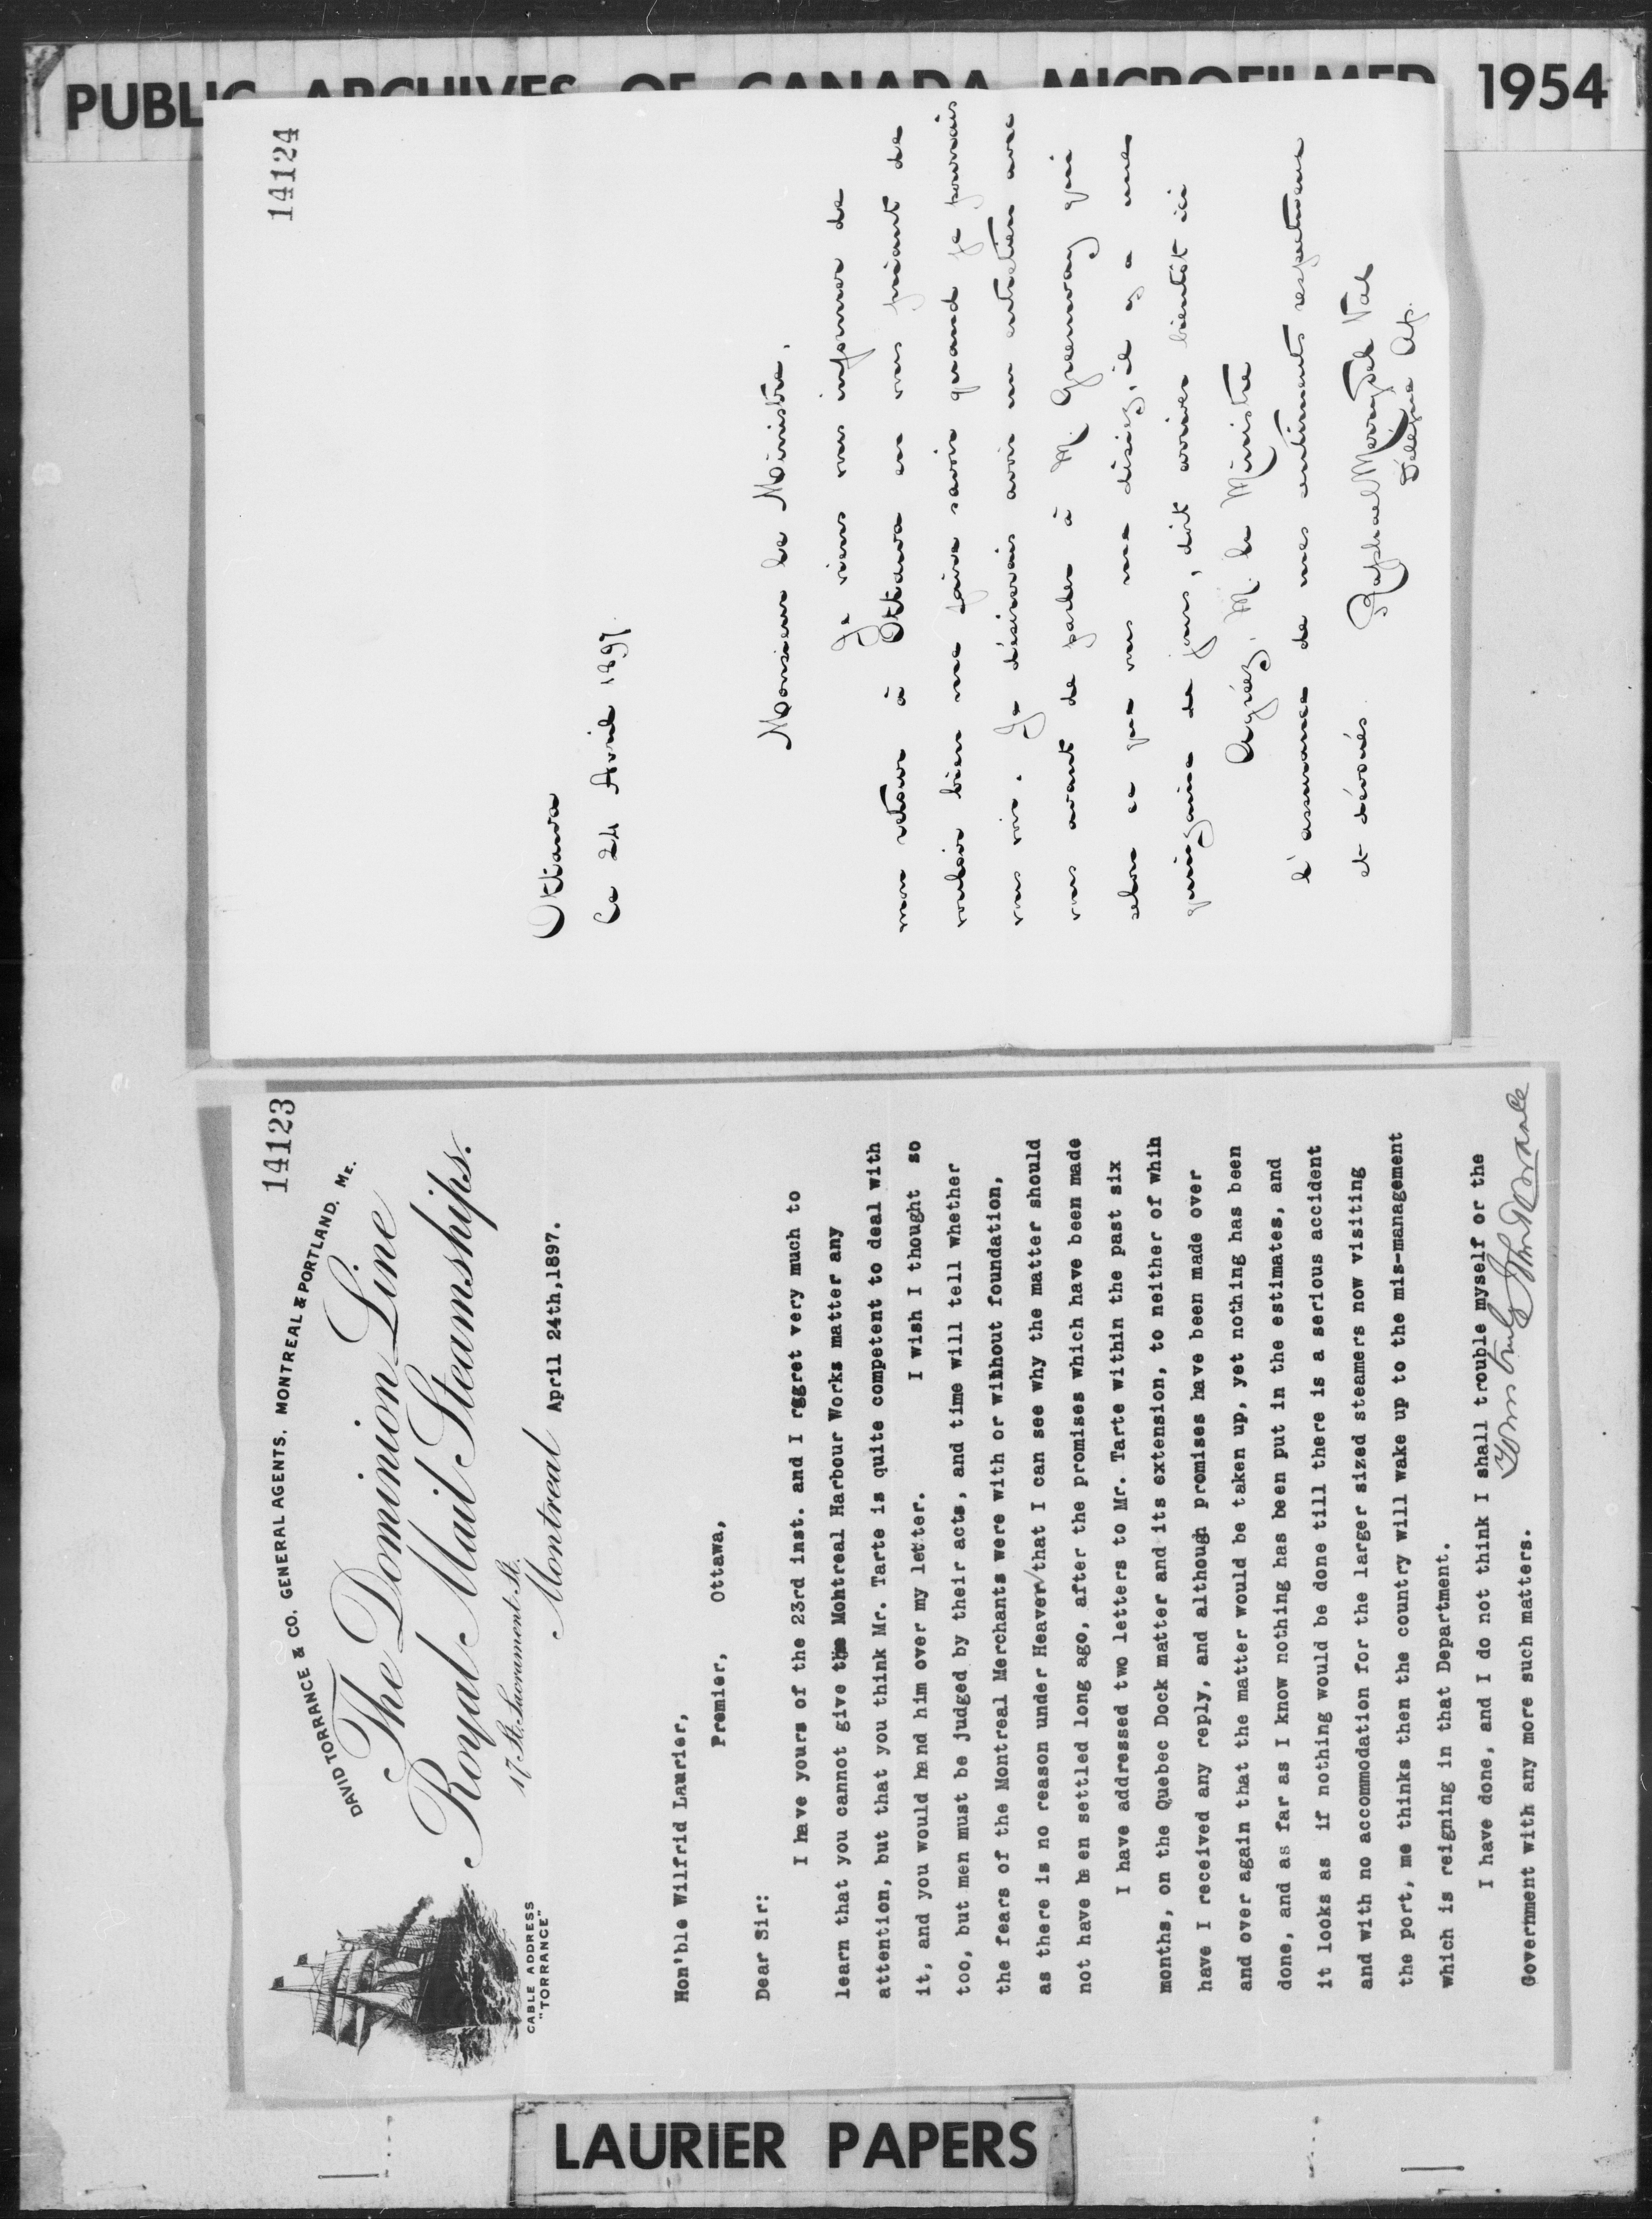 PUBLIC ARCHIVES OF CANADA MICROFILMED 1954
14123
DAVID TORRANCE & CO. GENERAL AGENTS, MONTREAL & PORTLAND, ME.
The Dominion Line
Royal Mail Steamships.
17 St. Sacrament St.
Montreal April 24th, 1897.
CABLE ADDRESS
"TORRANCE"
Hon'ble Wilfrid Laurier,
Premier, Ottawa,
Dear Sir:
I have yours of the 23rd inst. and I rggret very much to
learn that you cannot give the Montreal Harbour Works matter any
attention, but that you think Mr. Tarte is quite competent to deal with
it, and you would hand him over my letter. I wish I thought so
too, but men must be judged by their acts, and time will tell whether
the fears of the Montreal Merchants were with or wihhout foundation,
as there is no reason under Heaven/that I can see why the matter should
not have been settled long ago, after the promises which have been made
I have addressed two letters to Mr. Tarte within the past six
months, on the Quebec Dock matter and its extension, to neither of whih
have I received any reply, and although promises have been made over
and over again that the matter would be taken up, yet nothing has been
done, and as far as I know nothing has been put in the estimates, and
it looks as if nothing would be done till there is a serious accident
and with no accommodation for the larger sized steamers now visiting
the port, me thinks then the country will wake up to the mis-management
which is reigning in that Department.
I have done, and I do not think I shall trouble myself or the
Government with any more such matters.
Yours truly John Torrance
14124
Ottawa
Ce 24 Avril 1897.
Monsieur le Ministre,
Je viens vous informer de
mon retour à Ottawa en vous priant de
vouloir bien me faire savoir quand je pourrais
vous voir. Je désirerais avoir un entretien avec
vous avant de parler à M. Greenway qui
selon ce que vous me disiez, il y a une
quinzaine de jours, doit arriver bientôt ici
Agréez, M. le Ministre
l'assurance de mes sentiments respectueux
et dévoués.
Raphael Merry del Val
Délégué Ap.
LAURIER PAPERS